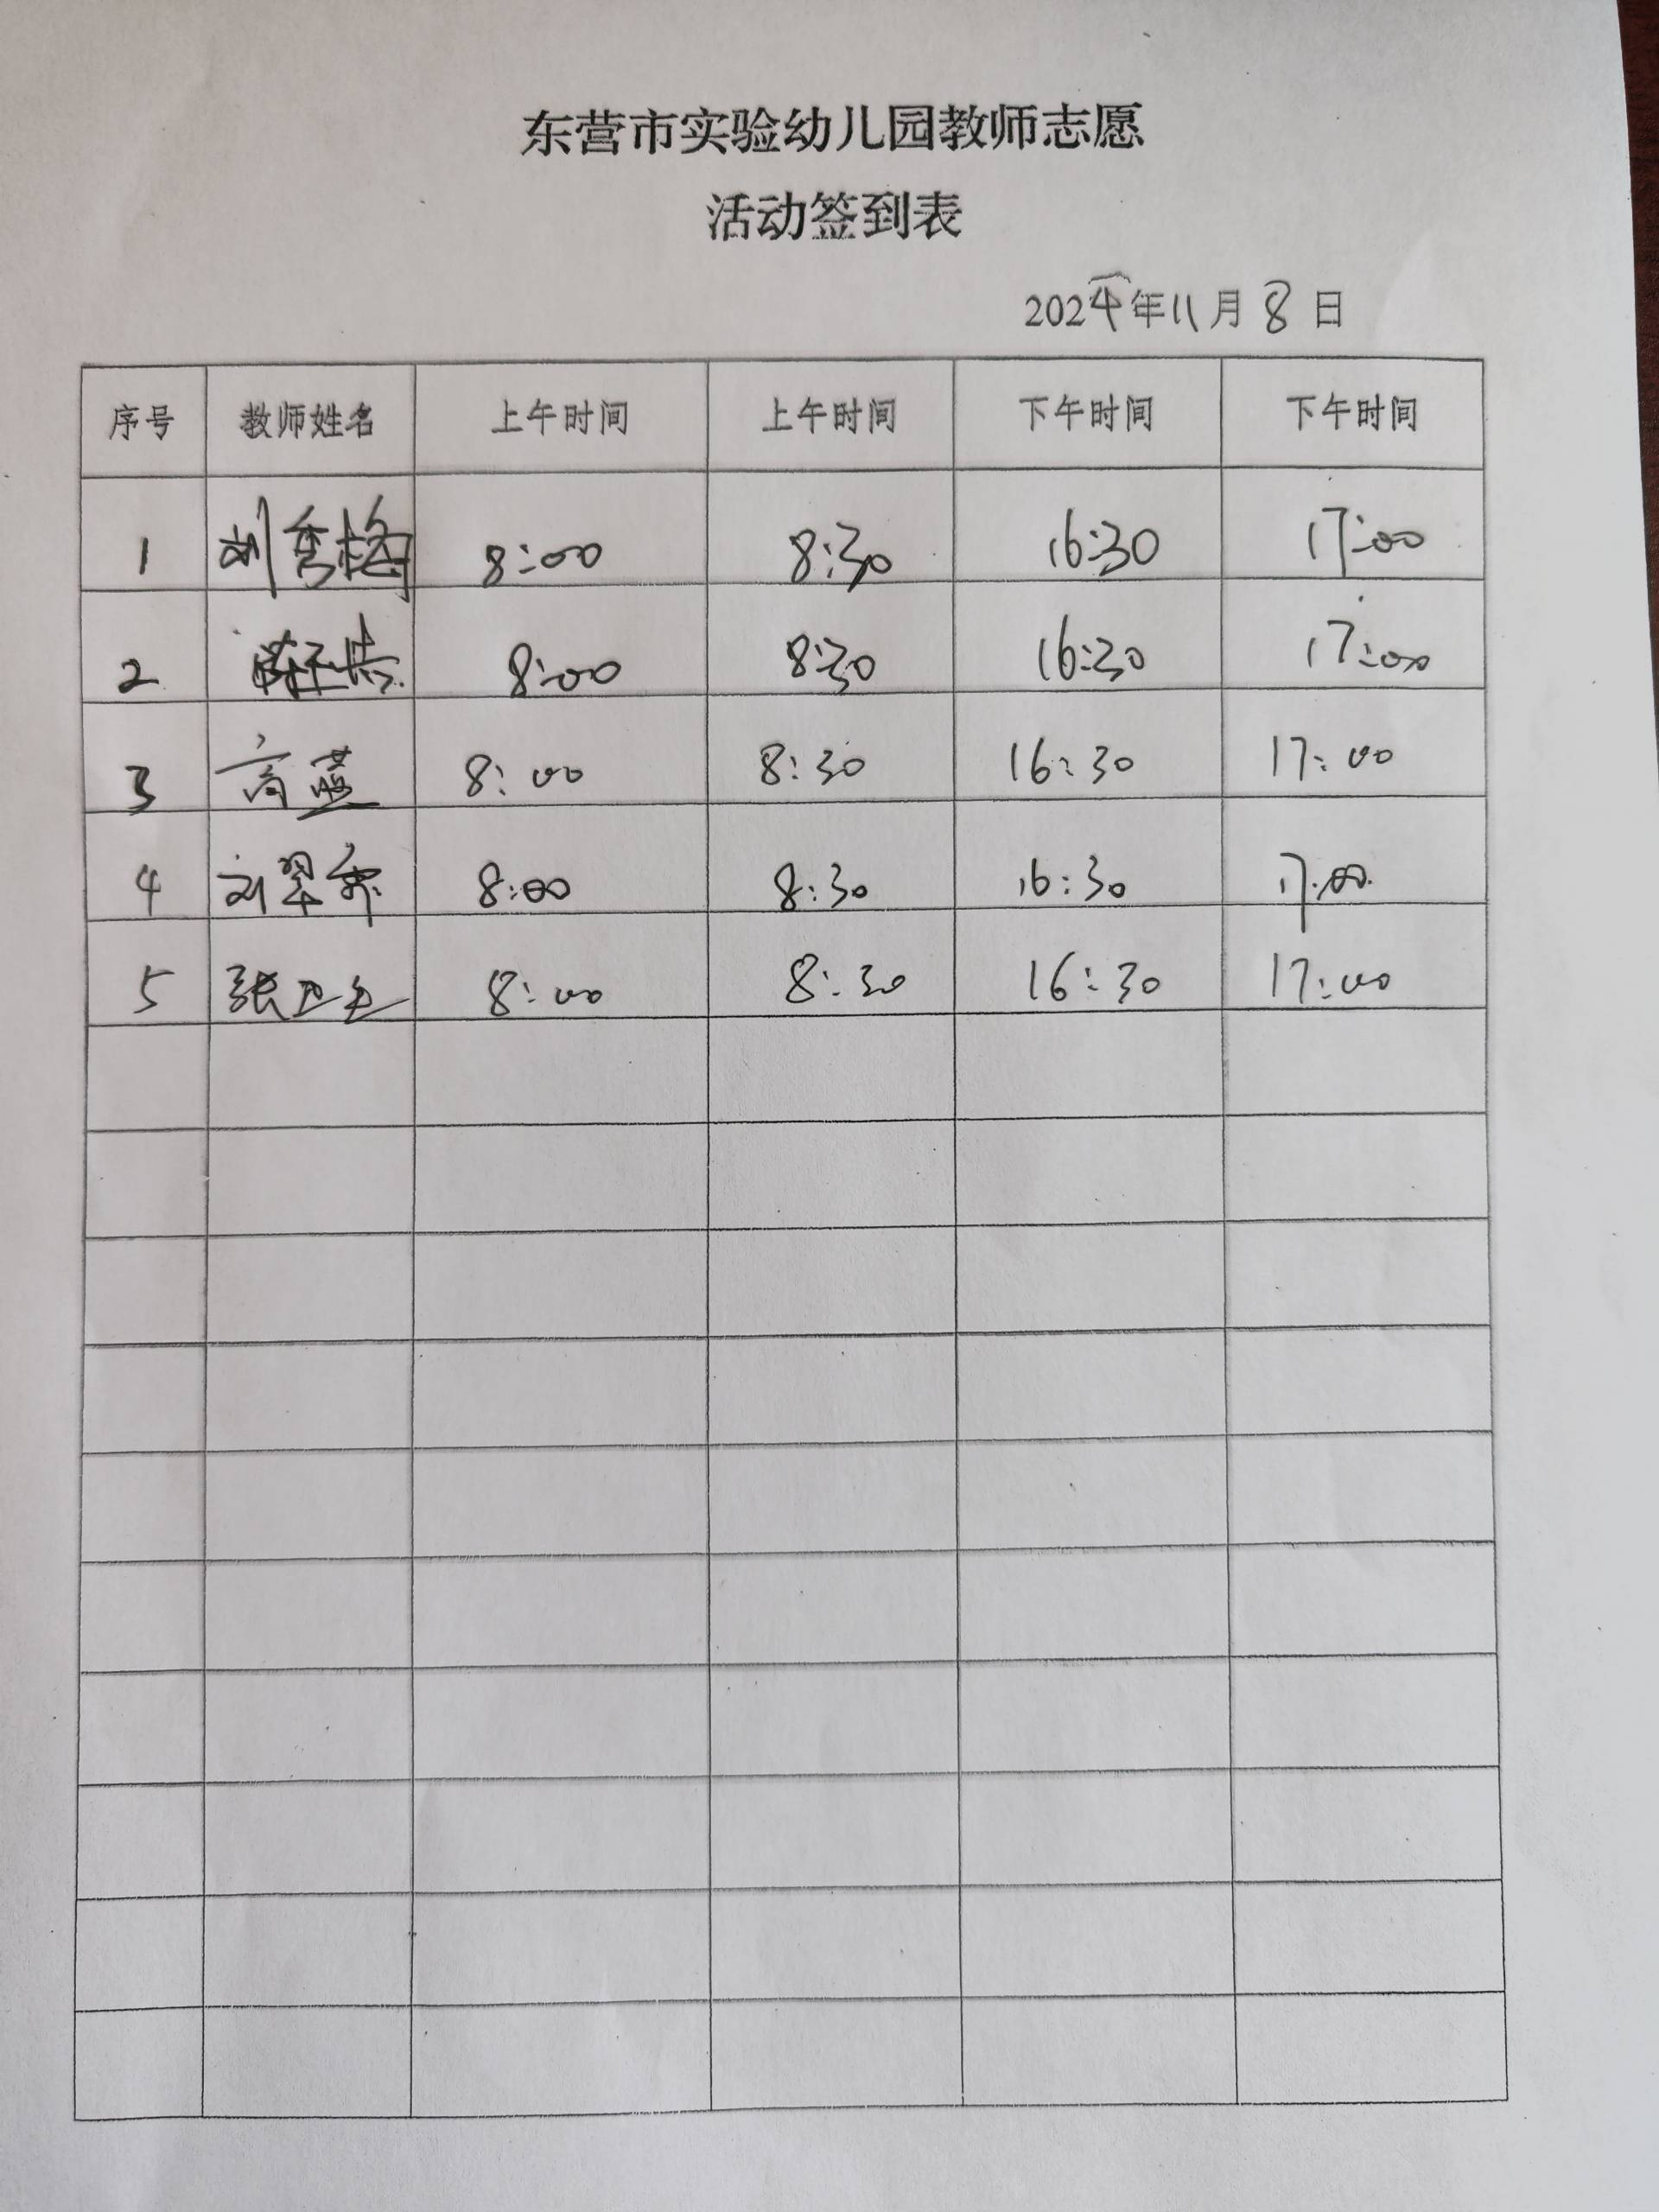 东营市实验幼儿园教师志愿
活动签到表
2024年11月8日
序号 教师姓名 上午时间 上午时间 下午时间 下午时间
1 刘秀梅 8:00 8:30 16:30 17:00
2 8:00 8:30 16:30 17:00
3 高燕 8:00 8:30 16:30 17:00
4 刘翠 8:00 8:30 16:30 17:00
5 张卫 8:00 8:30 16:30 17:00